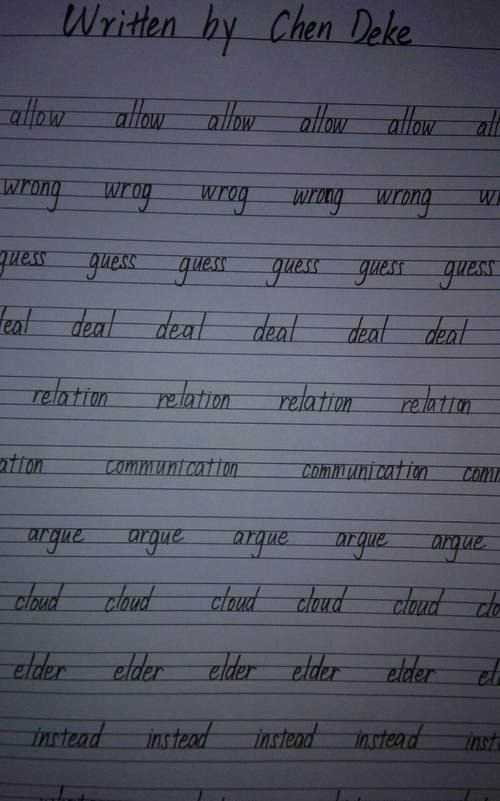 Written by Chen Deke
allow allow allow allow allow all
wrong wrog wrog wrong wrong wr
guess guess guess guess guess guess
deal deal deal deal deal deal
relation relation relation relation
ation communication communication comm
argue argue argue argue argue
cloud cloud cloud cloud cloud clo
elder elder elder elder elder el
instead instead instead instead inst